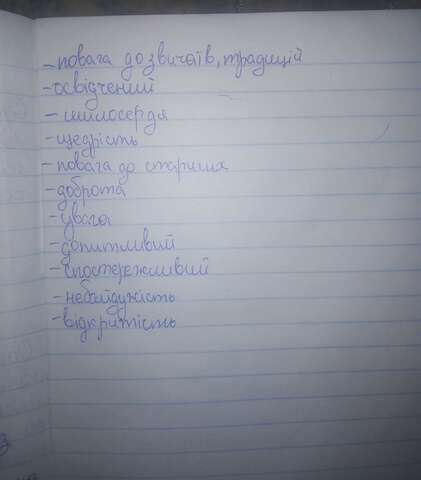 - повага до звичаїв, традицій
- освідчений
- милосердя
- щедрість
- повага до старших
- доброта
- увага
- допитливий
- спостережливий
- небайдужість
- відкритість